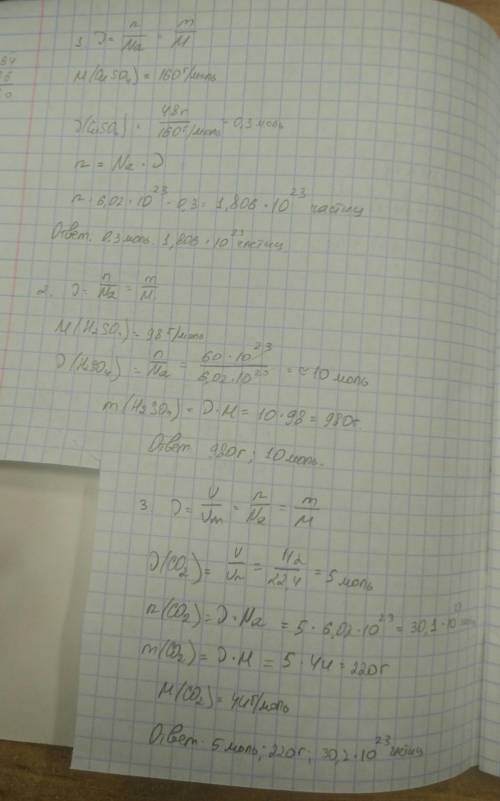 1. ν = n/Na = m/M
M(CuSO4) = 160 г/моль
ν(CuSO4) = 48г/160 г/моль = 0,3 моль
n = Na · ν
n = 6,02 · 10^23 · 0,3 = 1,806 · 10^23 частиц
Ответ: 0,3 моль 1,806 · 10^23 частиц
2. ν = n/Na = m/M
M(H2SO4) = 98 г/моль
ν(H2SO4) = n/Na = 60 · 10^23/6,02 · 10^23 = ≈ 10 моль
m(H2SO4) = ν · M = 10 · 98 = 980г
Ответ 980г; 10 моль.
3. ν = V/Vm = n/Na = m/M
ν(CO2) = V/Vm = 112/22,4 = 5 моль
n(CO2) = ν · Na = 5 · 6,02 · 10^23 = 30,1 · 10^23
m(CO2) = ν · M = 5 · 44 = 220г
M(CO2) = 44 г/моль
Ответ: 5 моль; 220г; 30,2 · 10^23 частиц